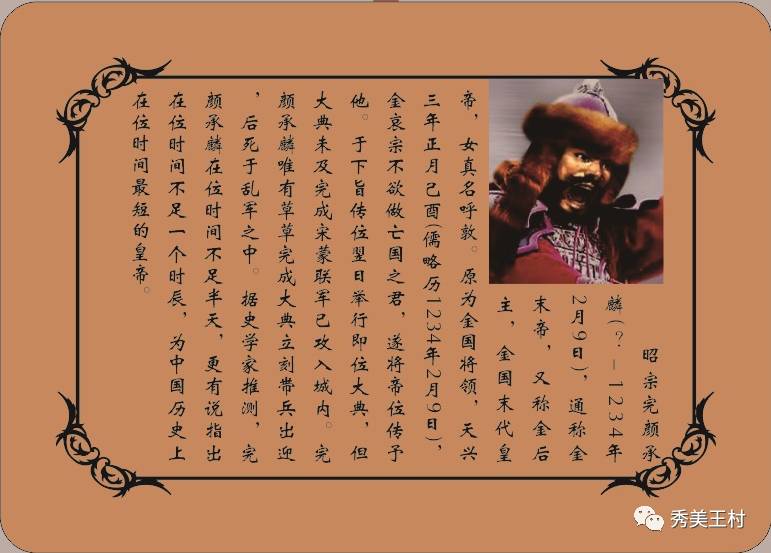 昭宗完颜承
麟(？-1234年
2月9日)，通称金
末帝，又称金后
主，金国末代皇
帝，女真名呼敦。原为金国将领，天兴
三年正月己酉(儒略历1234年2月9日)，
金哀宗不欲做亡国之君，遂将帝位传予
他。于下旨传位翌日举行即位大典，但
大典未及完成宋蒙联军已攻入城内。完
颜承麟唯有草草完成大典立刻带兵出迎
，后死于乱军之中。据史学家推测，完
颜承麟在位时间不足半天，更有说指出
在位时间不足一个时辰，为中国历史上
在位时间最短的皇帝。
秀美王村